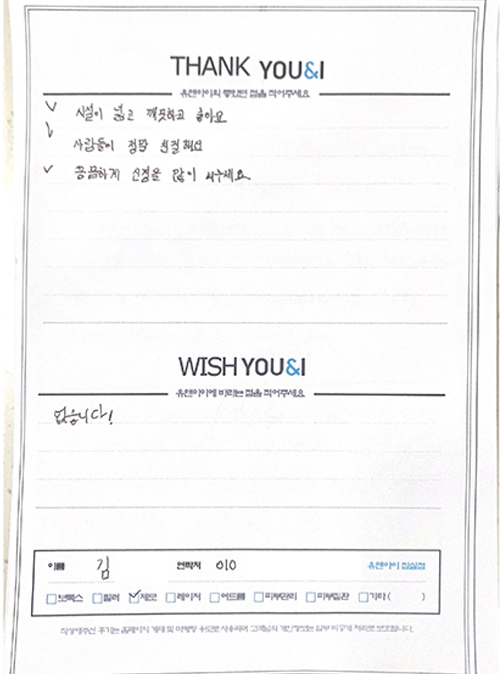 THANK YOU&I
유앤아이의 좋았던 점을 적어주세요.
시설이 넓고 깨끗하고 좋아요
사람들이 정말 친절해요
꼼꼼하게 신경을 많이 써주세요.
WISH YOU&I
유앤아이에 바라는 점을 적어주세요.
없습니다!
이름 김 연락처 010 유앤아이 잠실점
보톡스 필러 제모 레이저 여드름 피부관리 피부질환 기타( )
작성해주신 후기는 홈페이지 게재 및 마케팅 용도로 사용되며 고객님의 개인정보는 일부 비공개 처리로 보호됩니다.